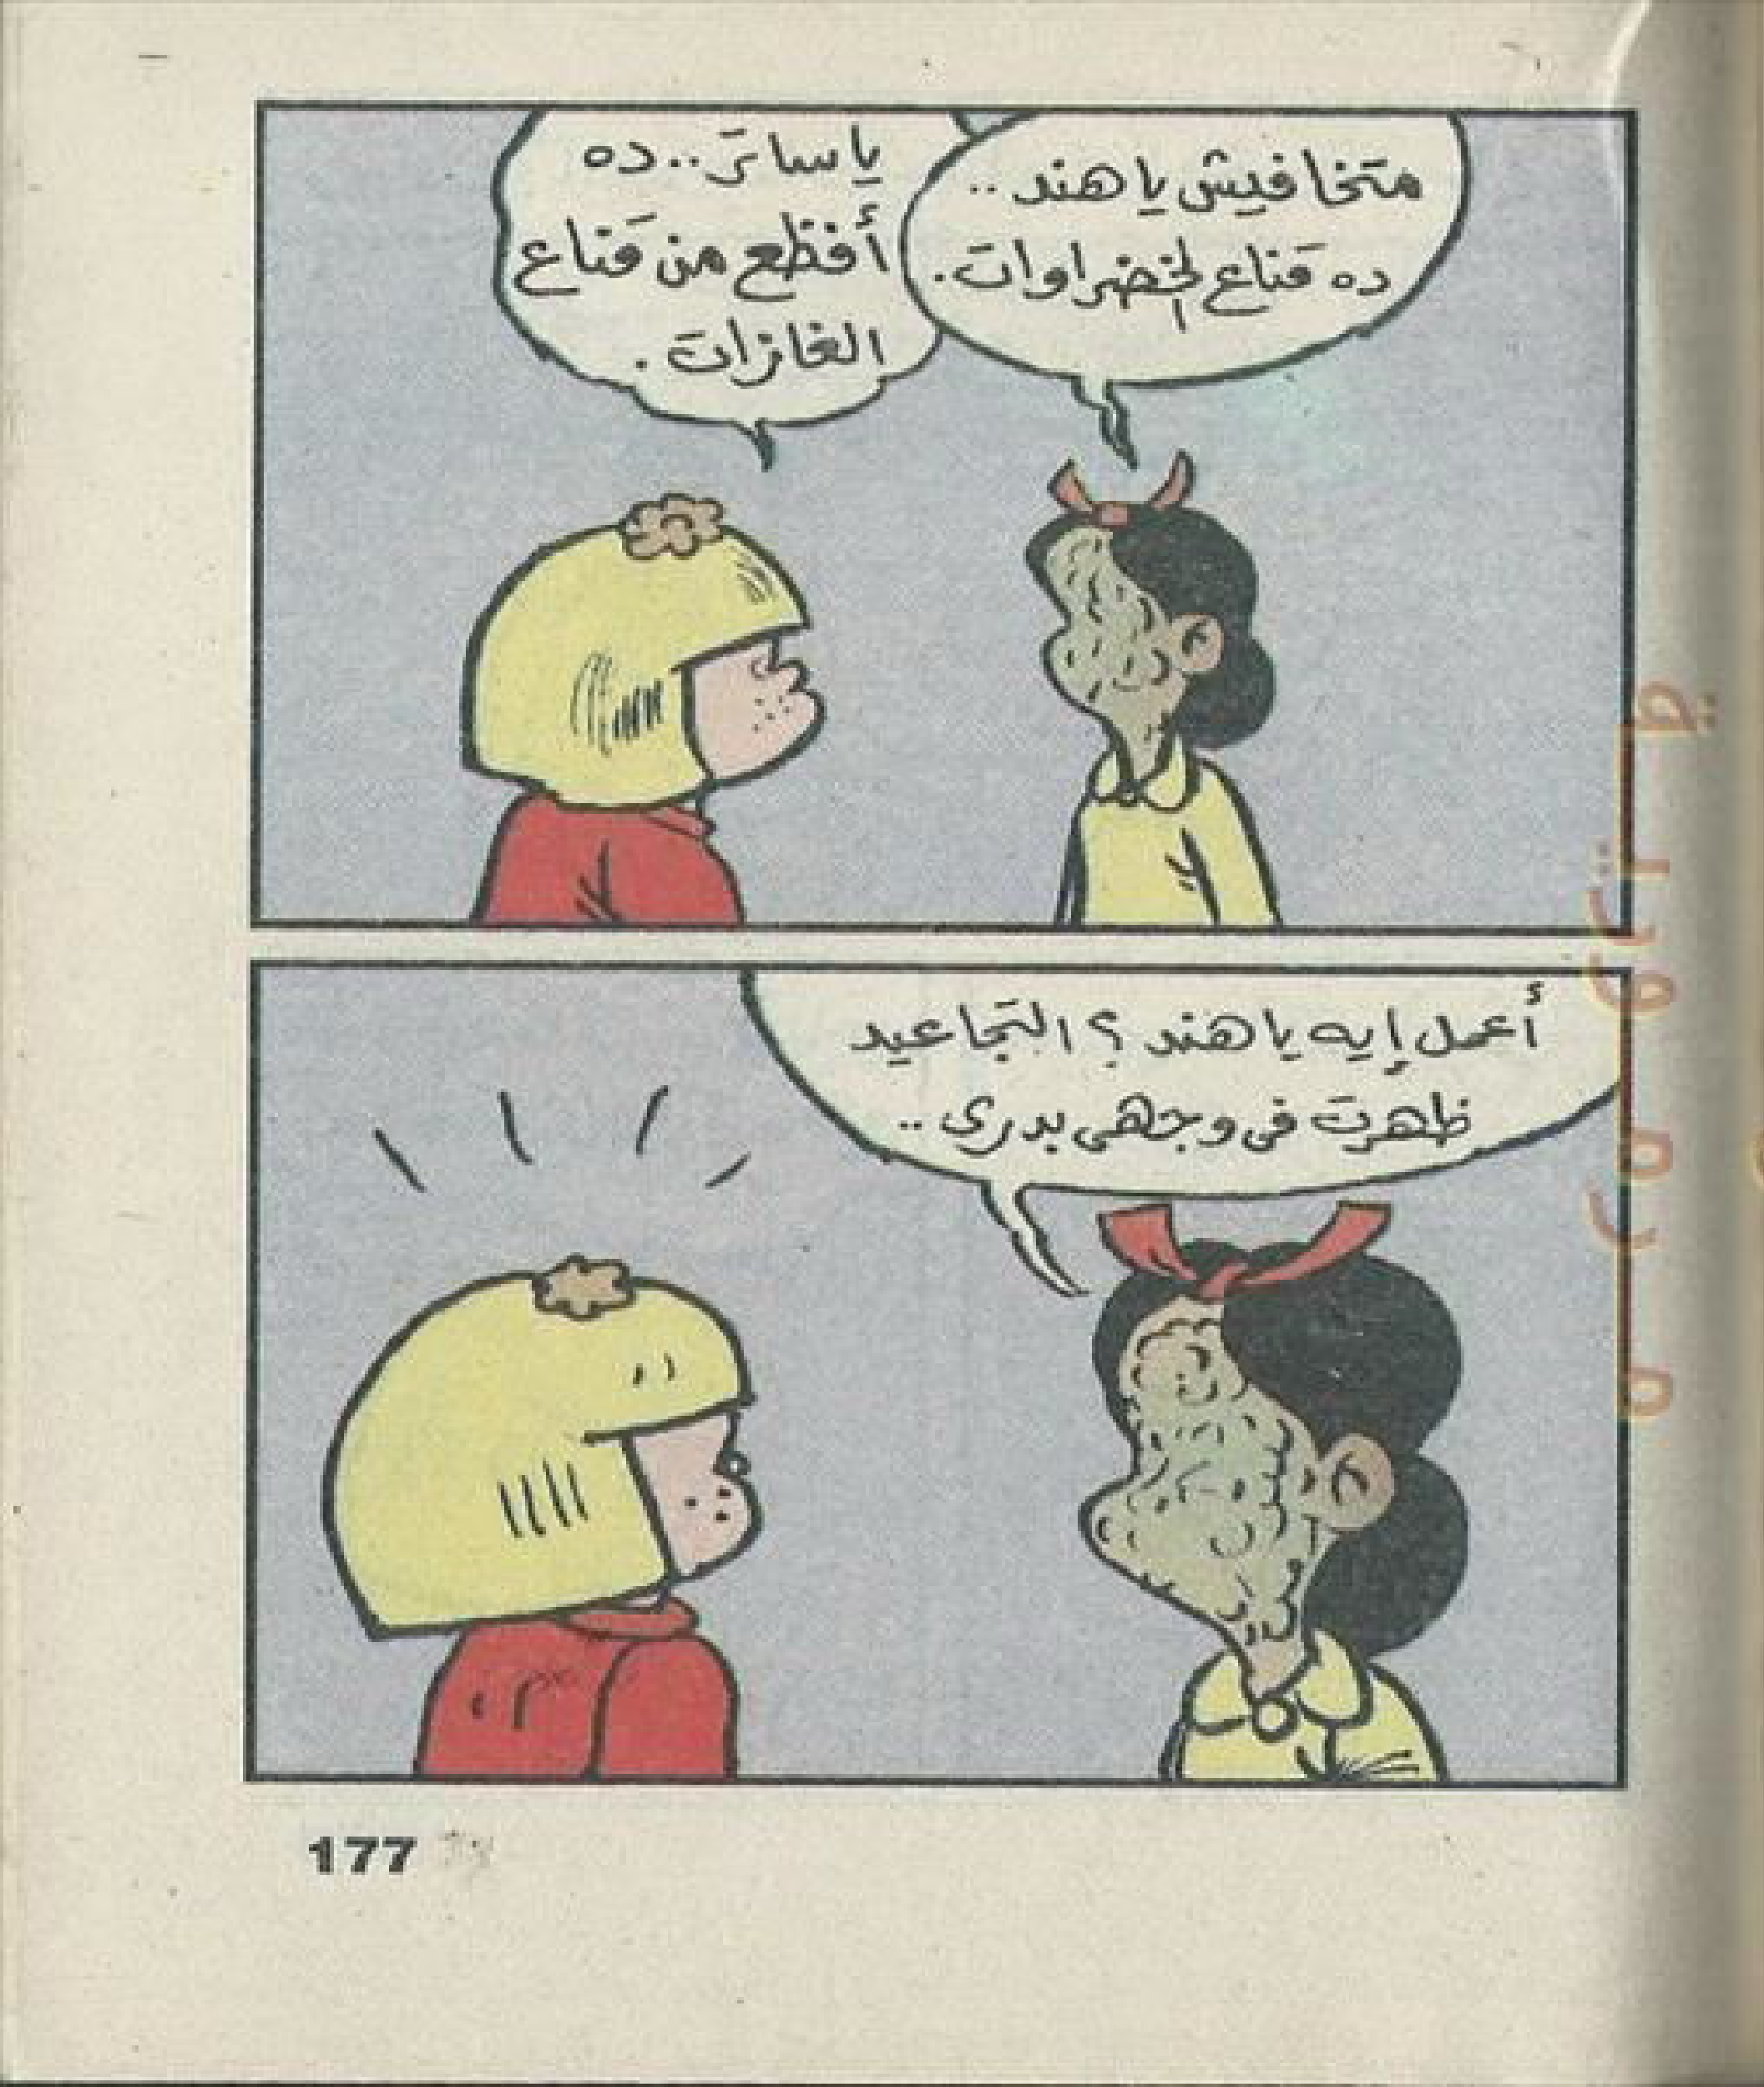 متخافيش يا هند..
ده قناع الخضراوات.
يا ساتر.. ده
أفظع من قناع
الغازات.
أعمل إيه يا هند؟ التجاعيد
ظهرت في وجهى بدرى..
177